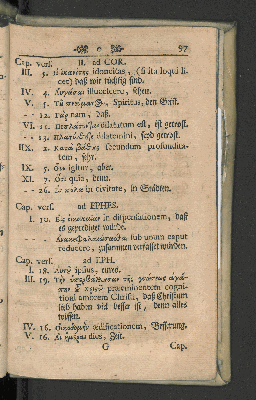 o 97
Cap. vers. II. ad COR.
III. 5. ἱκανότης idoneitas, (si ita loqui li-
cet) daß wir tüchtig sind.
IV. 4. Αυγάσαι illucescere, sehen.
V. 5. Τȣ πνεύματος Spiritus, den Geist.
-- 12. Γὰρ nam, daß.
VI. 11. dilatatum est, ist getrost.
-- 13. dilatemini, seyd getrost.
IIX. 2. Κατὰ βάθȣς secundum profundita-
tem, sehr.
IX. 5. Οὖν igitur, aber.
XI. 7. Ὅτι quia, denn.
-- 26. Ἐν πόλει in civitate, in Städten.
Cap. vers. ad EPHES.
I. 10. Εἰς οἰκονομίαν in dispensationem, daß
es geprediget würde.
-- Ἀνακεφαλαιώσασθαι sub unum caput
reducere, zusammen verfasset würden.
Cap. vers. ad EPH.
I. 18. Αυτȣ ipsius, eures.
III. 19. Τὴν ὑπερβάλλουσαν τῆς γνώσεως ἀγά-
πην τȣ χριστȣ preeminentem cogni-
tioni amorem Christi, daß Christum
lieb haben viel besser ist, denn alles
wissen.
IV. 16. Οικοδομὴν ædificationem, Besserung.
V. 16. Αἱ ἡμέραι dies, Zeit.
G Cap.